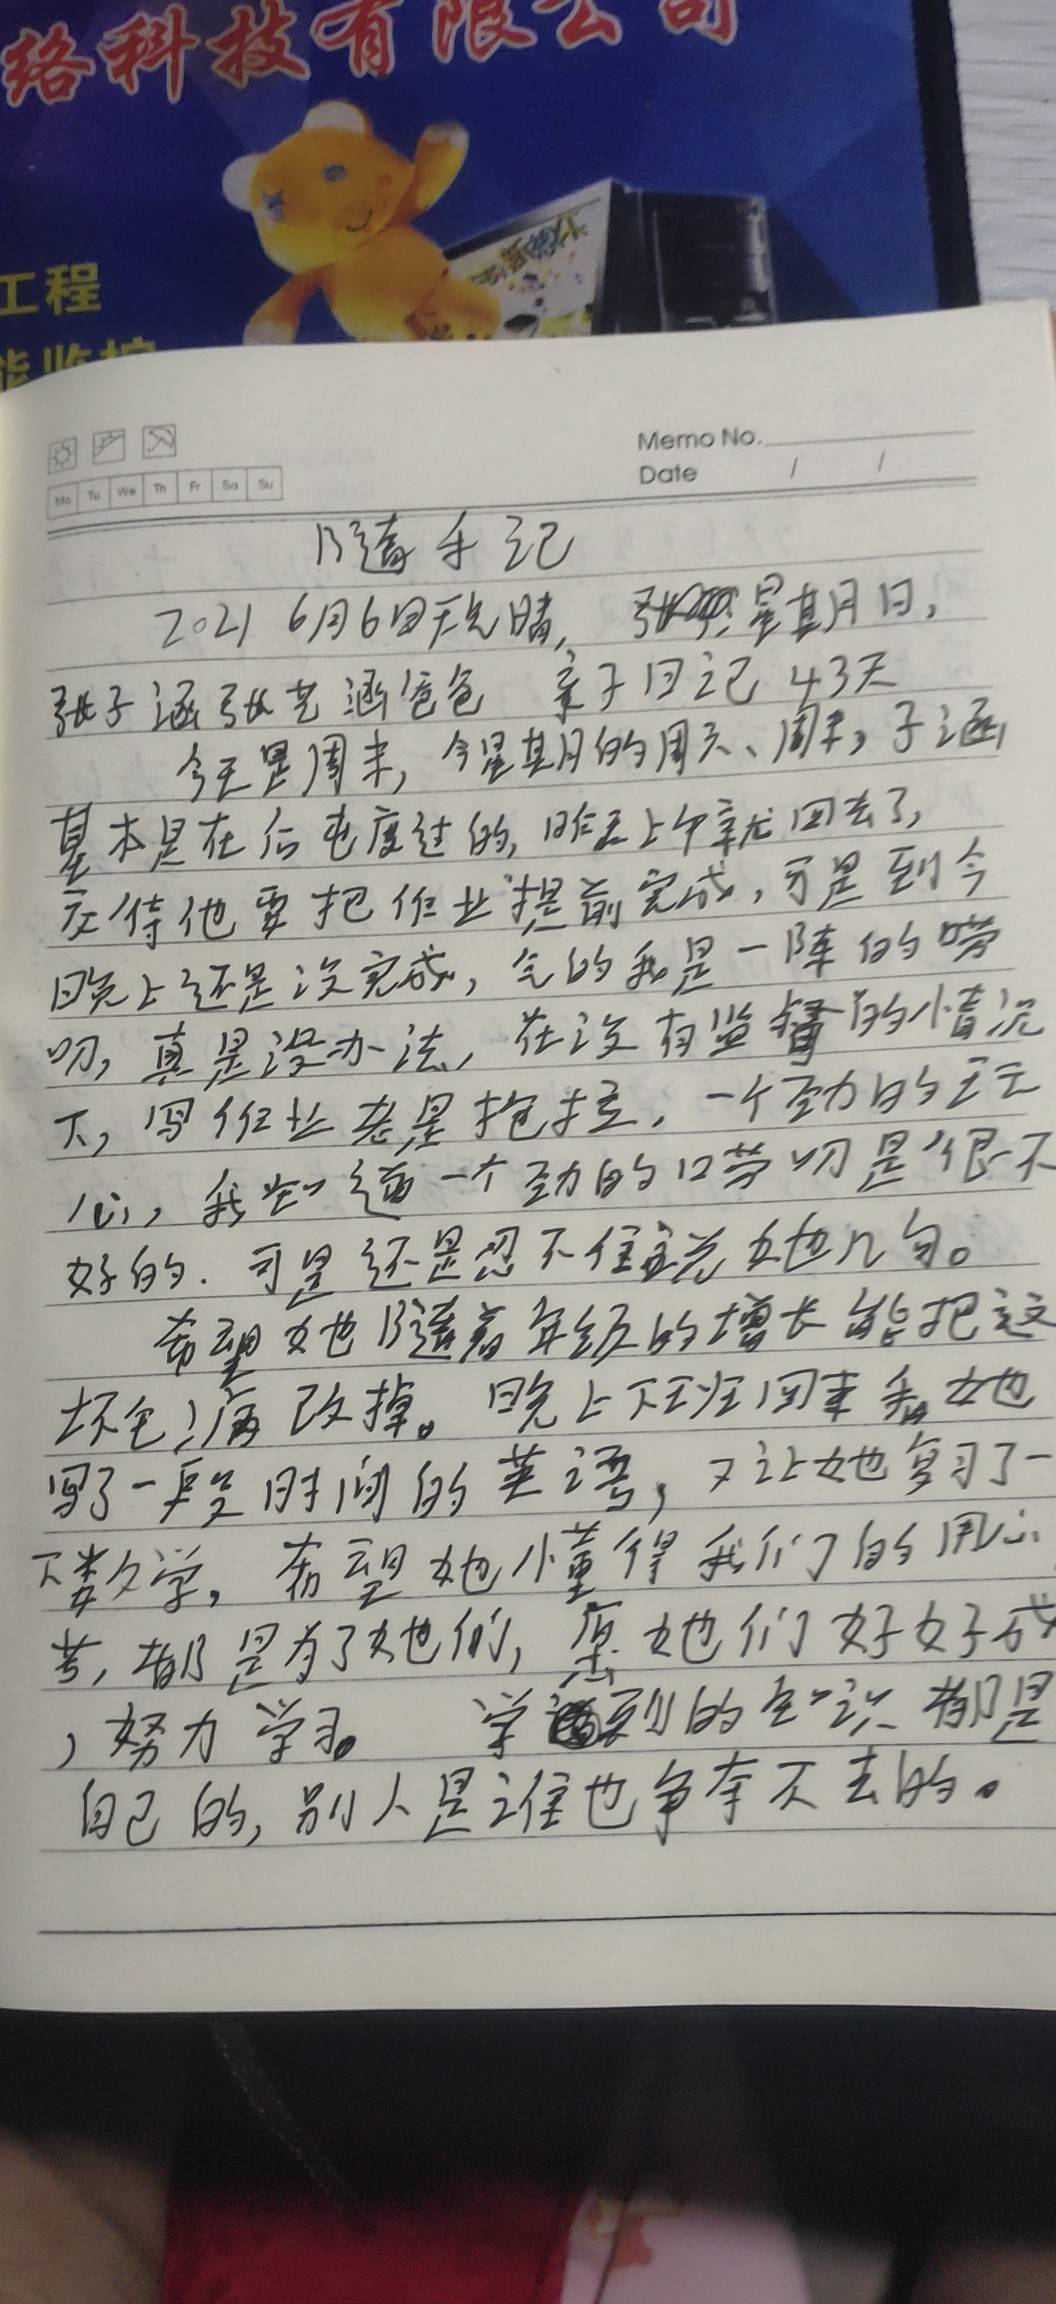 络科技有限公司
工程
能监控
Memo No.
Date / /
Mo Tu We Th Fr Sa Su
随手记
2021 6月6日天气晴, 星期日,
张子涵张艺涵爸爸 亲子日记 43天
今天是周末, 今星期的周六、周末, 子涵
基本是在后屯度过的, 昨天上午就回去了,
交待他要把作业提前完成, 可是到今
晚上还是没完成, 气的我是一阵的唠
叨, 真是没办法, 在没有监督的情况
下, 写作业老是拖拉, 一个劲的无
心, 我知道一个劲的唠叨是很不
好的. 可是还是忍不住说她几句。
希望她随着年级的增长能把这
坏毛病改掉。晚上下班回来 她
写了一段时间的英语, 又让她复习了一
下数学, 希望她懂得我们的用心
苦, 都是为了她们, 愿她们好好成
, 努力学习。 学到的知识都是
自己的, 别人是谁也争夺不去的。